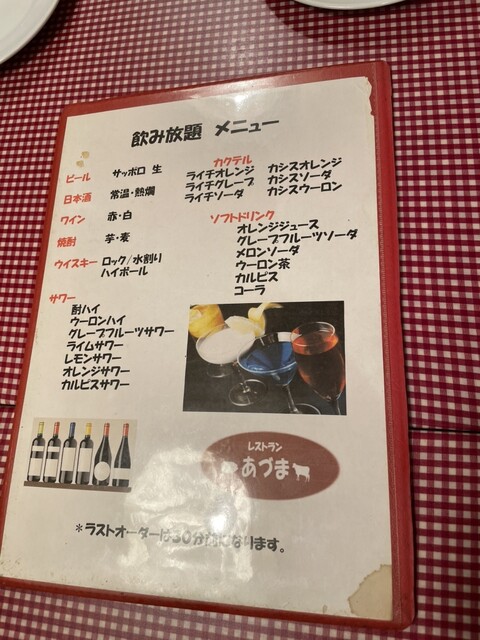 飲み放題 メニュー
ビール サッポロ 生
日本酒 常温・熱燗
ワイン 赤・白
焼酎 芋・麦
ウイスキー ロック/水割り
ハイボール
サワー
酎ハイ
ウーロンハイ
グレープフルーツサワー
ライムサワー
レモンサワー
オレンジサワー
カルピスサワー
カクテル
ライチオレンジ カシスオレンジ
ライチグレープ カシスソーダ
ライチソーダ カシスウーロン
ソフトドリンク
オレンジジュース
グレープフルーツソーダ
メロンソーダ
ウーロン茶
カルピス
コーラ
レストラン
あづま
＊ラストオーダーは30分前になります。